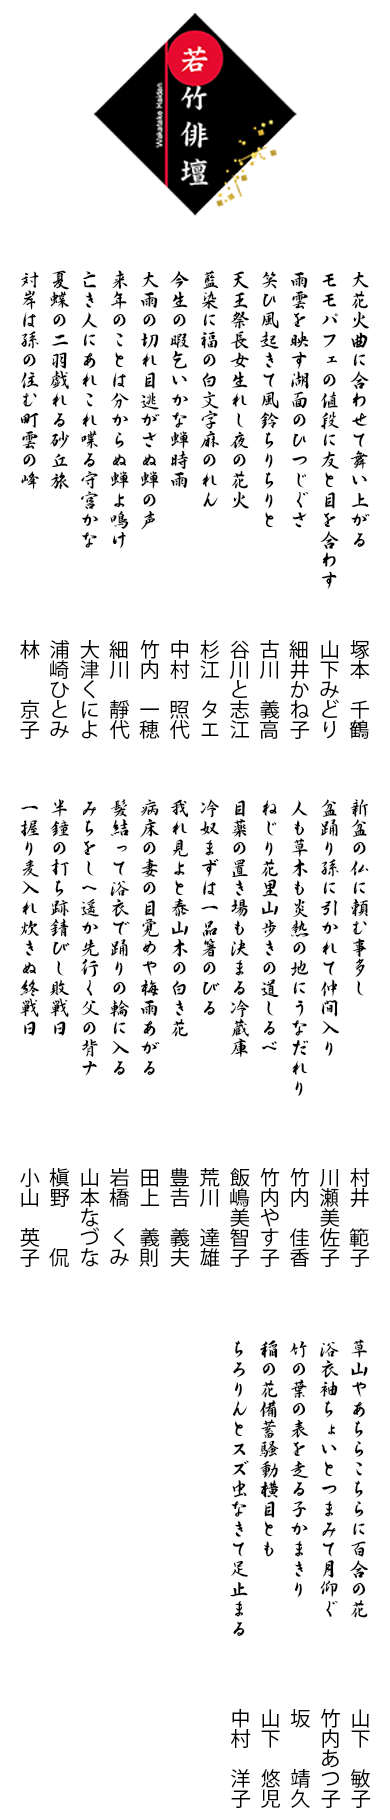 若竹俳壇
Wakatake Haidan
大花火曲に合わせて舞い上がる
塚本 千鶴
モモパフェの値段に友と目を合わす
山下みどり
雨雲を映す湖面のひつじぐさ
細井かね子
笑ひ風起きて風鈴ちりちりと
古川 義高
天王祭長女生れし夜の花火
谷川と志江
藍染に福の白文字麻のれん
杉江 タエ
今生の暇乞いかな蝉時雨
中村 照代
大雨の切れ目逃がさぬ蝉の声
竹内 一穂
来年のことは分からぬ蝉よ鳴け
細川 靜代
亡き人にあれこれ喋る守宮かな
大津くによ
夏蝶の二羽戯れる砂丘旅
浦崎ひとみ
対岸は孫の住む町雲の峰
林 京子
新盆の仏に頼む事多し
村井 範子
盆踊り孫に引かれて仲間入り
川瀬美佐子
人も草木も炎熱の地にうなだれり
竹内 佳香
ねじり花里山歩きの道しるべ
竹内やす子
目薬の置き場も決まる冷蔵庫
飯嶋美智子
冷奴まずは一品箸のびる
荒川 達雄
我れ見よと泰山木の白き花
豊吉 義夫
病床の妻の目覚めや梅雨あがる
田上 義則
髪結って浴衣で踊りの輪に入る
岩橋 くみ
みちをしへ遥か先行く父の背ナ
山本なづな
半鐘の打ち跡錆びし敗戦日
槇野 侃
一握り麦入れ炊きぬ終戦日
小山 英子
草山やあちらこちらに百合の花
山下 敏子
浴衣袖ちょいとつまみて月仰ぐ
竹内あつ子
竹の葉の表を走る子かまきり
坂 靖久
稲の花備蓄騒動横目とも
山下 悠児
ちろりんとスズ虫なきて足止まる
中村 洋子